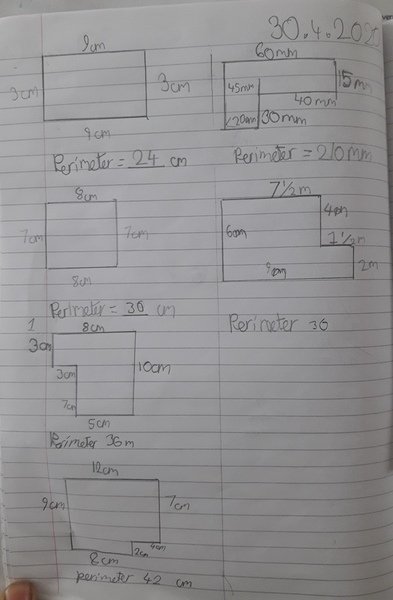 30.4.20
9cm
3cm
3cm
9cm
Perimeter = 24 cm
60mm
45mm
15mm
40mm
20mm
30mm
Perimeter = 210mm
8cm
7cm
7cm
8cm
Perimeter = 30 cm
7½ m
4m
6m
1½ m
2m
9m
Perimeter 30
1
8cm
3cm
3cm
10cm
7cm
5cm
Perimeter 36m
12cm
9cm
7cm
4cm
2cm
8cm
perimeter 42 cm